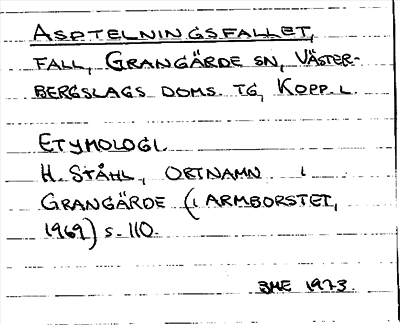 ASPTELNINGSFALLET,
FALL, GRANGÄRDE SN, VÄSTER-
BERGSLAGS DOMS. TG, KOPP. L.
ETYMOLOGI.
H. STÅHL, ORTNAMN I
GRANGÄRDE (I ARMBORSTET,
1969) S. 110.
BME 1973.